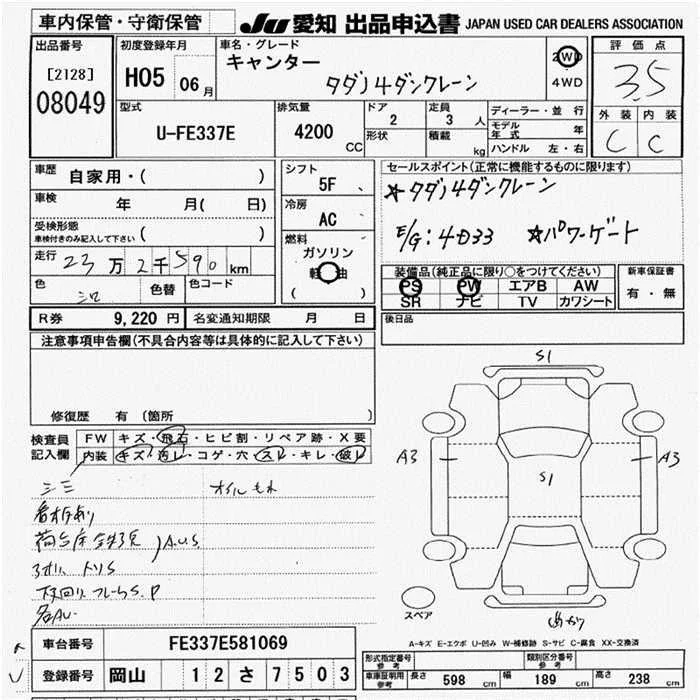 車内保管・守衛保管
JU 愛知 出品申込書 JAPAN USED CAR DEALERS ASSOCIATION
出品番号
[2128]
08049
初度登録年月
H05 06 月
車名・グレード
キャンター
タダノ4ダンクレーン
2WD
4WD
評価点
3.5
外装 内装
C C
型式
U-FE337E
排気量
4200
CC
ドア
2
定員
3 人
形状
積載
kg
ディーラー・並行
モデル年式 年
ハンドル 左・右
車歴
自家用・( )
車検
年 月( 日)
受検形態
車検付きのみ記入して下さい ( )
走行
23万2千590km
色
シロ
色替
色コード
シフト
5F
冷房
AC
燃料
ガソリン
軽油
( )
セールスポイント(正常に機能するものに限ります)
☆タダノ4ダンクレーン
E/G:4D33 ☆パワーゲート
装備品(純正品に限り○をつけてください)
PS PW エアB AW
SR ナビ TV カワシート
新車保証書
有・無
R券 9,220 円 名変通知期限 月 日
後日品
注意事項申告欄(不具合内容等は具体的に記入して下さい)
修復歴 有(箇所 )
検査員記入欄
FW キズ・飛石・ヒビ割・リペア跡・X要
内装 キズ・汚レ・コゲ・穴・スレ・キレ・破レ
オイルもれ
荷台床鉄板 )A.U.S
下回りフレームS.P
各AU
S1
A3
S1
A3
S1
スペア
A-キズ E-エクボ U-凹み W-補修跡 S-サビ C-腐食 XX-交換済
車台番号 FE337E581069
登録番号 岡山 12さ7503
形式指定番号
参考
類別区分番号
参考
車庫証明用
参考
長さ 598 cm 幅 189 cm 高さ 238 cm